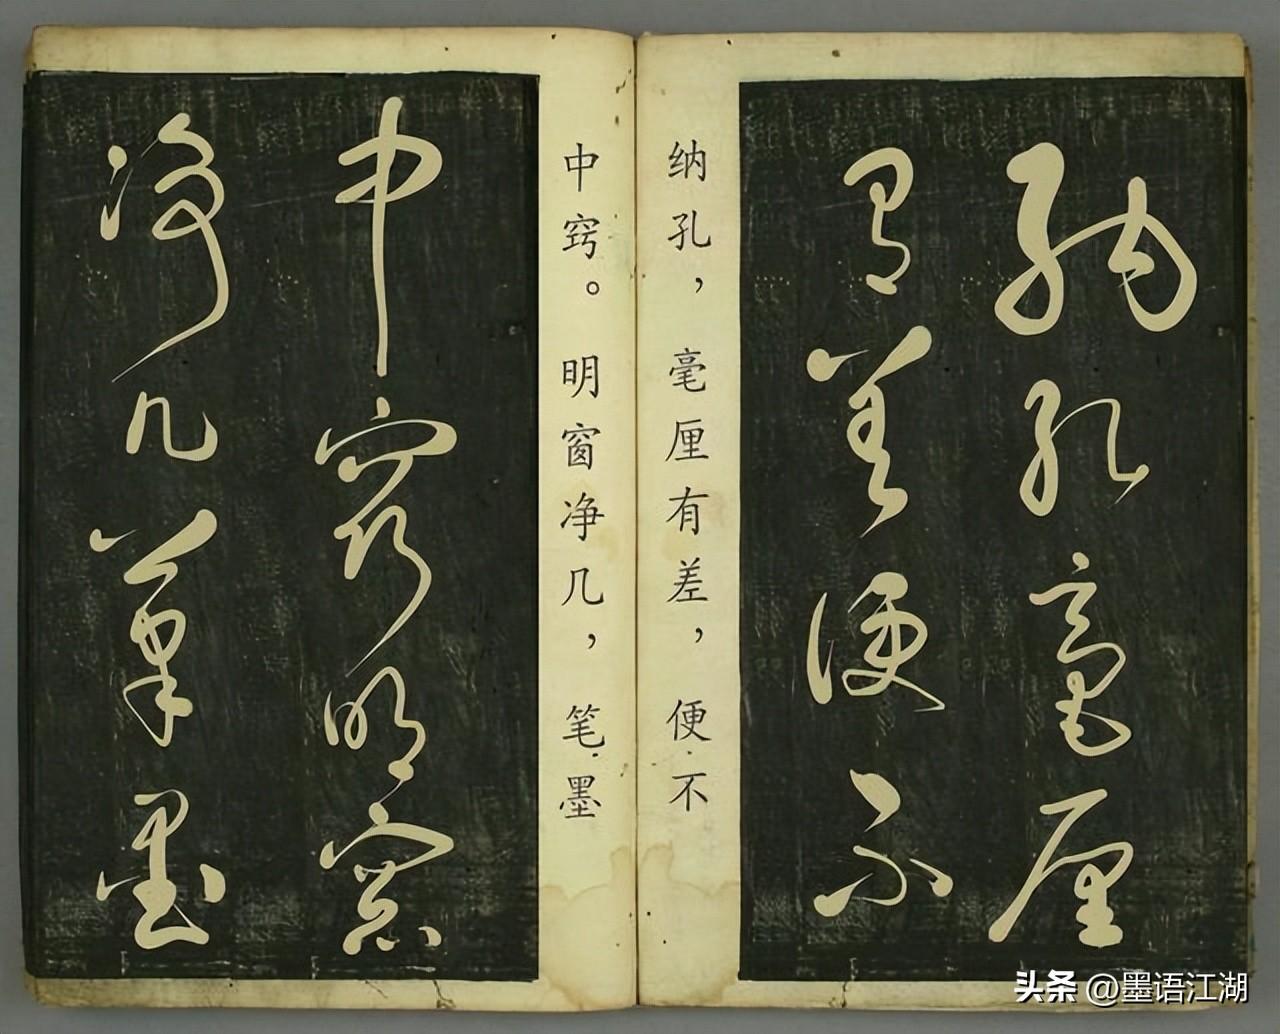 纳孔毫厘
有差便不
纳孔，毫厘有差，便不
中窍。明窗净几，笔墨
中窍明窗
净几笔墨
头条 @墨语江湖